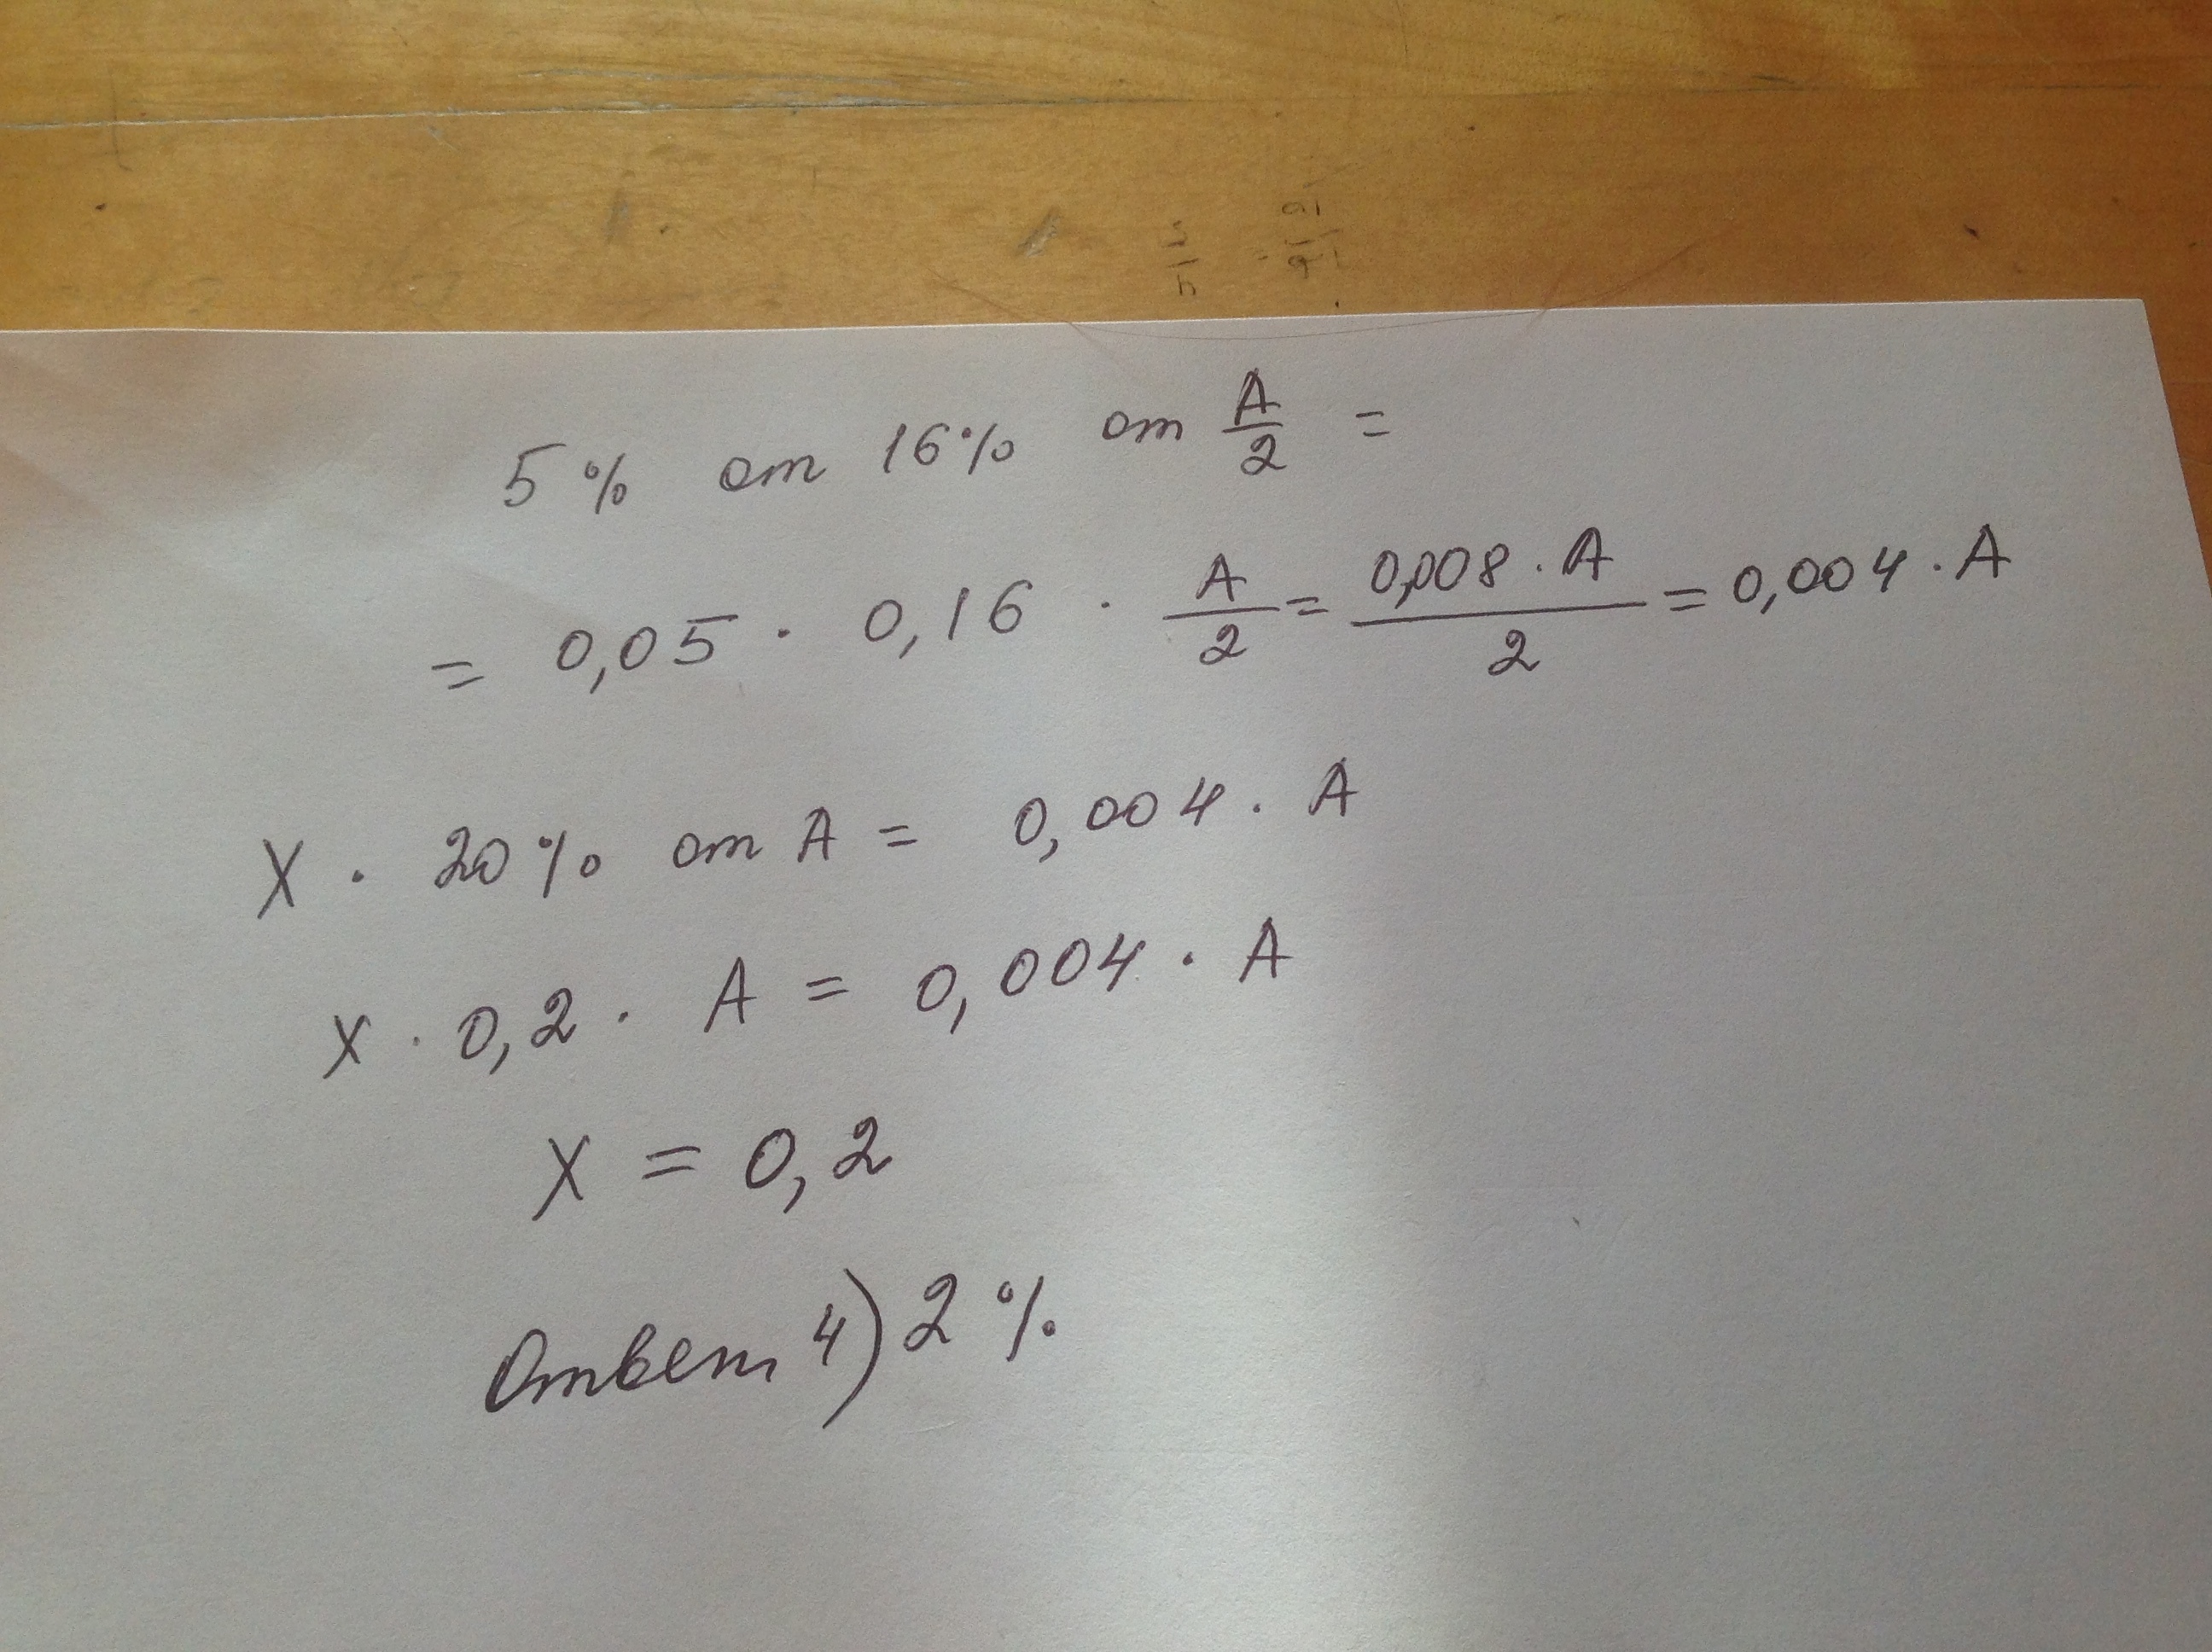 5% от 16% от A/2 =
= 0,05 · 0,16 · A/2 = 0,008 · A/2 = 0,004 · A
X · 20% от A = 0,004 · A
X · 0,2 · A = 0,004 · A
X = 0,2
Ответ 4) 2%